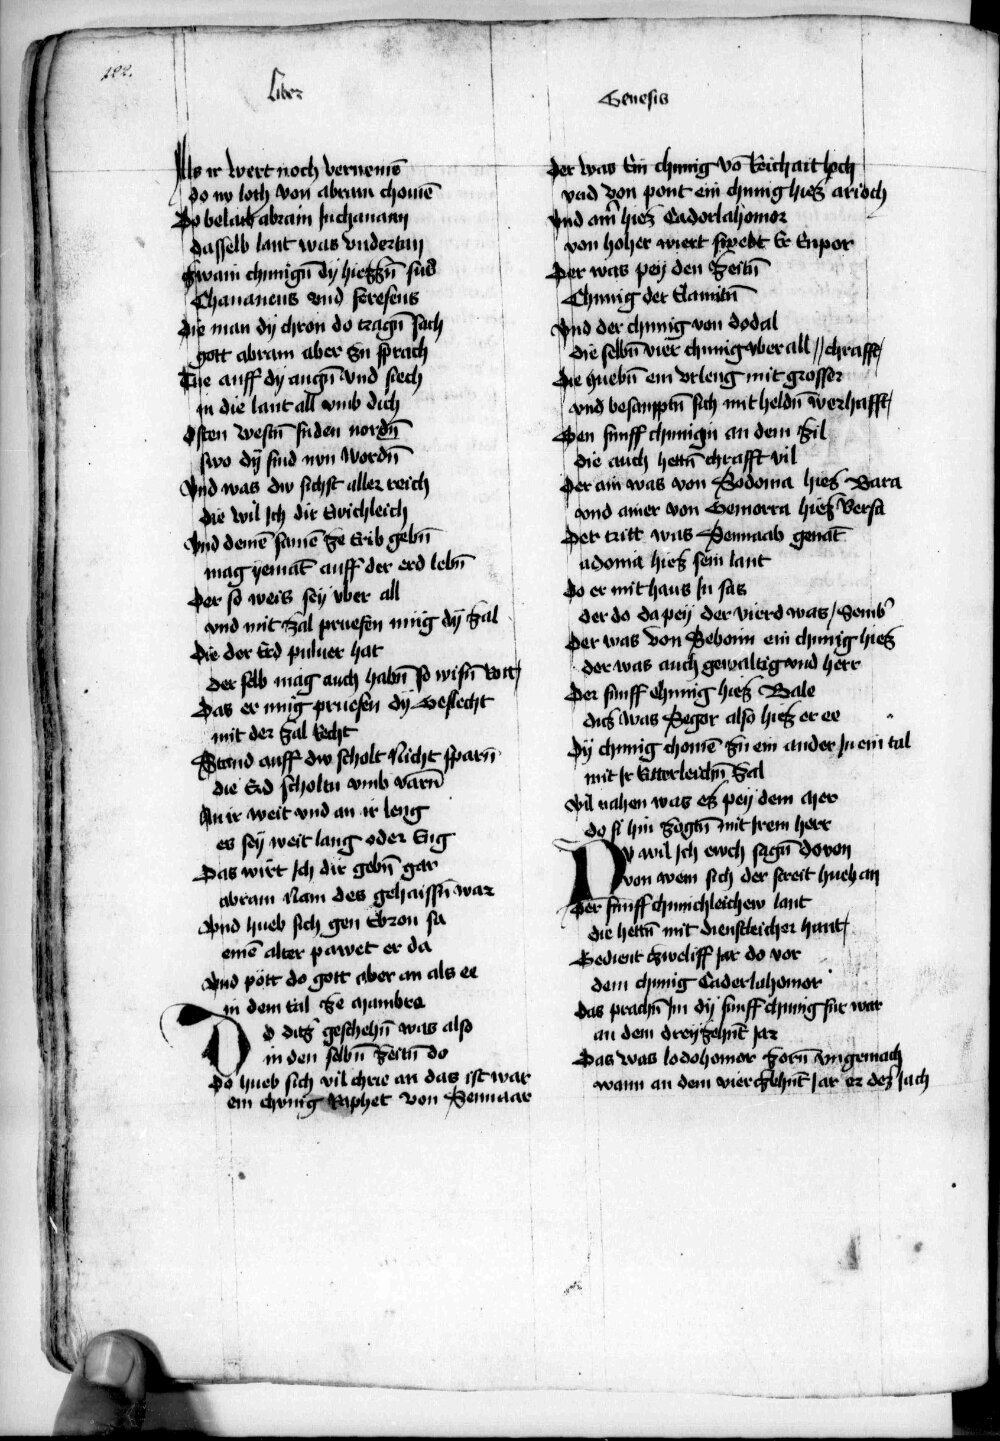 122.
Liber
Genesis
Als ir wert noch vernemē
do nv loth von abram chomē
Do belaib abram In chanaan
dasselb lant was vndertan
zwain chunigñ dy hiezzñ sus
Chananeus vnd fereseus
die man dy chron do tragñ sach
gott abram aber zu sprach
Tue auff dy augñ vnd siech
in die lant all vmb dich
Osten westñ suden nordñ
swo dÿ sind nvn wordñ
Vnd was dw sichst aller reich
die wil Ich dir Ewichleich
Vnd deinē samē ze Erib gebñ
mag yemāt auff der erd lebñ
Der so weis sey vber all
vnd mit zal pruefen müg dÿ zal
Die der Erd puluer hat
der selb mag auch habñ so wisñ Rat
Das er müg pruefen dÿ Geslecht
mit der zal Recht
Stand auff dw scholt Nicht sparñ
die Erd scholtu vmb varñ
An ir weit vnd an ir leng
es seÿ weit lang oder Eng
Das wirt Ich dir gebñ gar
abram Nam des gehaissñ war
Vnd hueb sich gen Ebron sa
einē alter pawet er da
Vnd pött do gott aber an als ee
in dem tal ze Mambre
Do ditz geschehñ was also
in den selbñ zeitñ do
Do hueb sich vil chrie an das ist war
ein chunig Raphet von Sennaar
Der was Ein chunig vō Reichait hoch
vnd von pont ein chunig hiez arioch
Vnd ain̄ hiez Cadorlahomor
von hoher wiert swebt Er Enpor
Der was pey den zeitñ
Chunig der Elamitñ
Vnd der chunig von dodal
die selbñ vier chunig vber all // chrafft/
Die huebñ ein vrleng mit grosser
vnd besamptñ sich mit heldñ werhafft/
Gen funff chunign an dem zil
die auch hettñ chrafft vil
Der ain was von Sodoma hiez Bara
vnd ainer von Gemorra hiez Bersa
Der tritt was Sennaab genāt
adoma hiez sein lant
Do er mit haus In sas
der do da pey der vierd was / Semb̉
Der was von Seboim ein chunig hiez
der was auch gewaltig vnd herr
Der funff chunig hiez Bale
ditz was Segor also hiez er ee
Dÿ chunig chomē zu ein ander In ein tal
mit Ir Ritterleichñ zal
Vil nahen was ez pey dem Mer
do si hin zogtñ mit Irem herr
Nv wil Ich ewch sagñ dovon
von wem sich der streit hueb an
Der funff chunichleichew lant
die hettñ mit dienstleicher hant/
Gedient zweliff Jar do vor
dem chunig Caderlahomor
Das prachñ Im dÿ funff chunig fur war
an dem dreyzehnt̄ Jar
Das was lodohomor zorñ vngemach
wann an dem vierzehnt̄ Jar er dez Jach